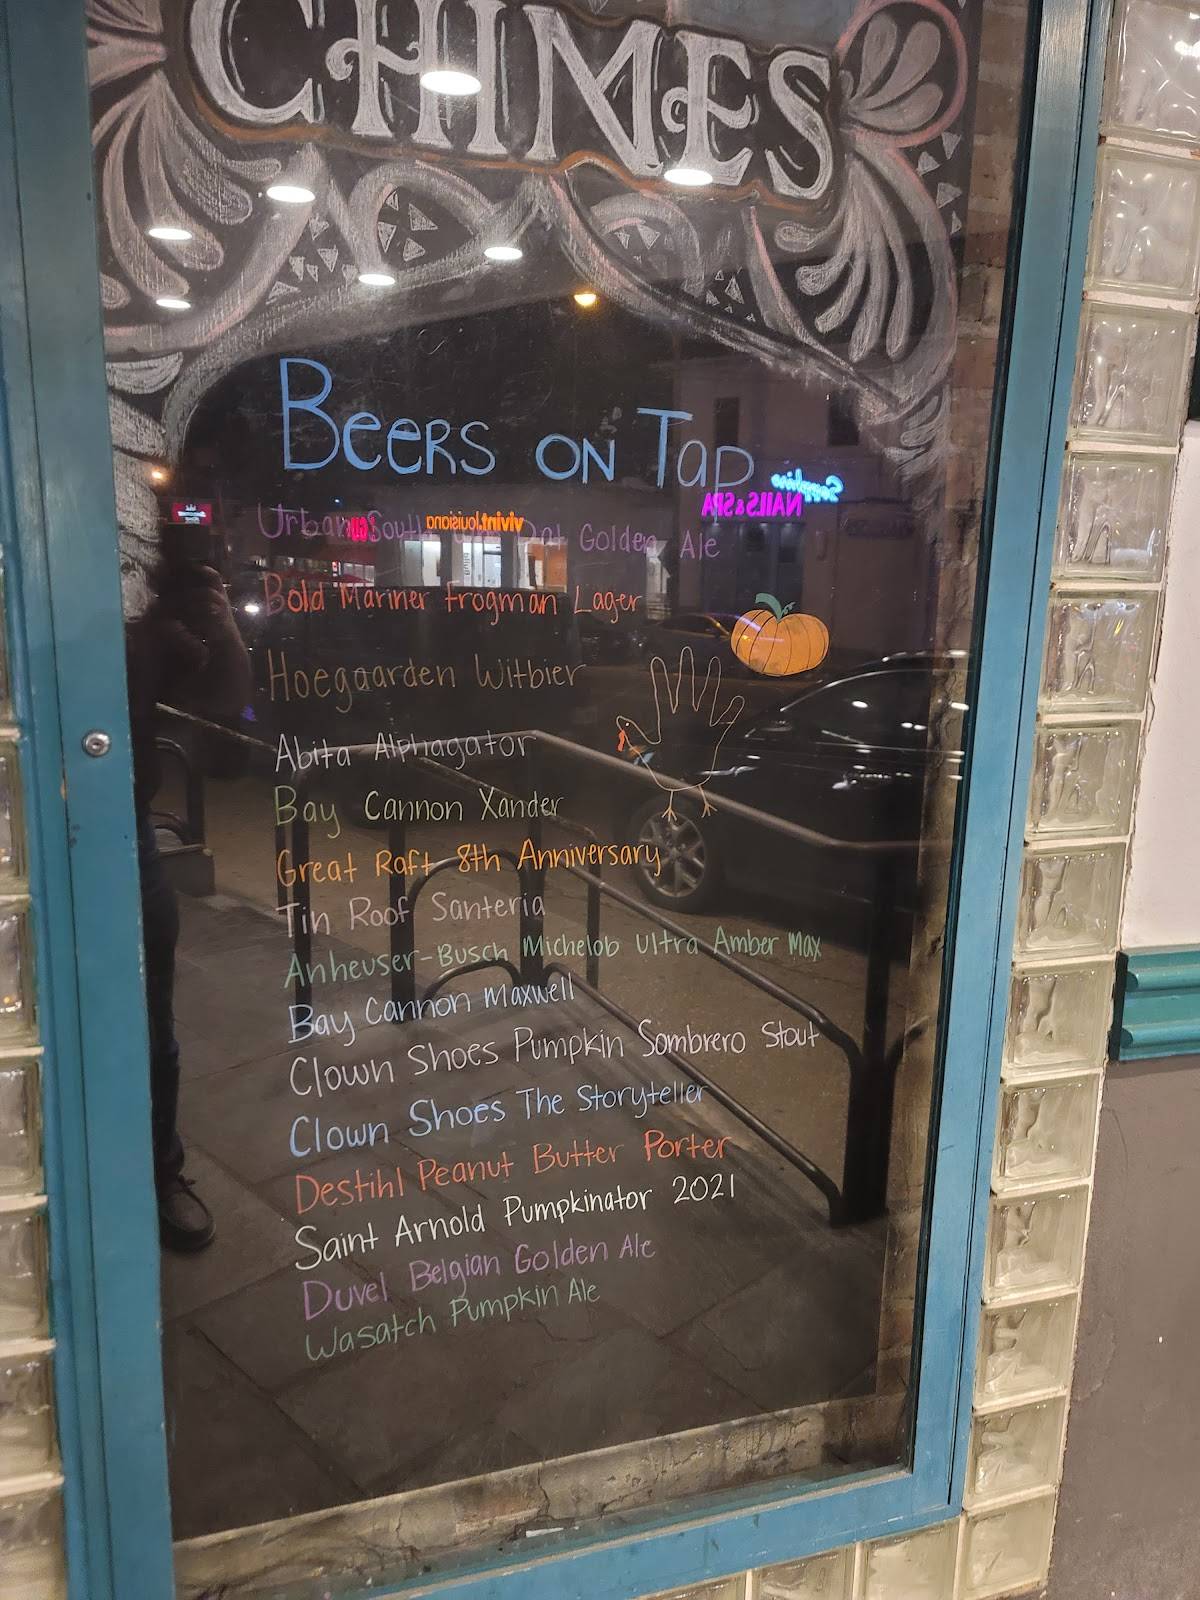 CHIMES
Beers on Tap
Sapphire
NAILS & SPA
vivint.louisiana
Urban South Dat Golden Ale
Bold Mariner Frogman Lager
Hoegaarden Witbier
Abita Alphagator
Bay Cannon Xander
Great Raft 8th Anniversary
Tin Roof Santeria
Anheuser-Busch Michelob Ultra Amber Max
Bay Cannon Maxwell
Clown Shoes Pumpkin Sombrero Stout
Clown Shoes The Storyteller
Destihl Peanut Butter Porter
Saint Arnold Pumpkinator 2021
Duvel Belgian Golden Ale
Wasatch Pumpkin Ale